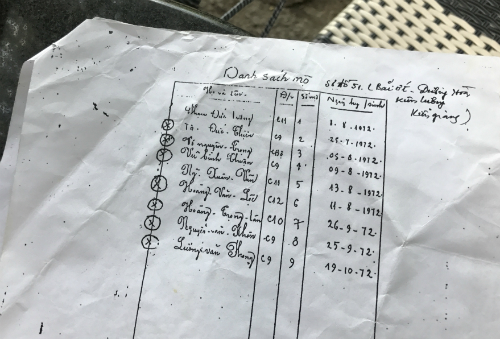 Danh sách mồ Sơ đồ số 1. (Bãi ớt. Dương Hòa
Kiên Lương
Kiên giang)
Họ và tên. Đ/v Số mộ Ngày hy sinh
Phạm Đức Lượng C11 1 1-8-1972.
Tô. Đức Thiện C9 2 25-7-1972.
Vi nguyên Trọng 3 05-8-1972.
Vũ bình Thuận C9 4 09-8-1972.
Ngô Xuân Văn C11 5 13-8-1972
Hoàng Văn Lộc C12 6 11-8-1972
Hoàng Trọng C10 7 26-9-72.
Nguyễn văn C9 8 25-9-72.
Lường văn Thong C9 9 19-10-72.